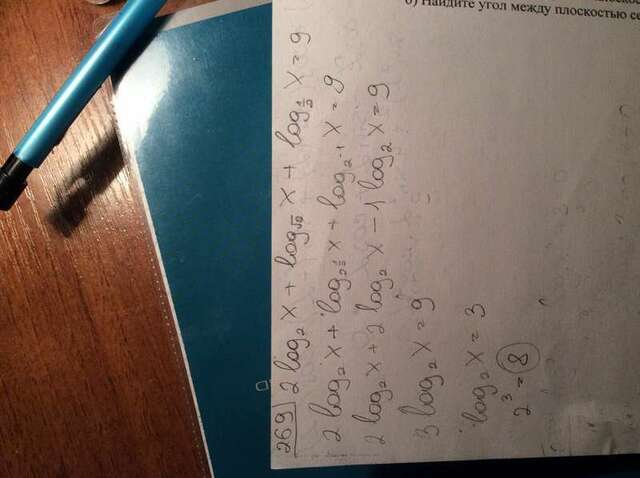 269 2 log₂ x + log_√2 x + log_½ x = 9
2 log₂ x + log_2^½ x + log_2^-1 x = 9
2 log₂ x + 2 log₂ x - 1 log₂ x = 9
3 log₂ x = 9
log₂ x = 3
2³ = 8
б) Найдите угол между плоскостью